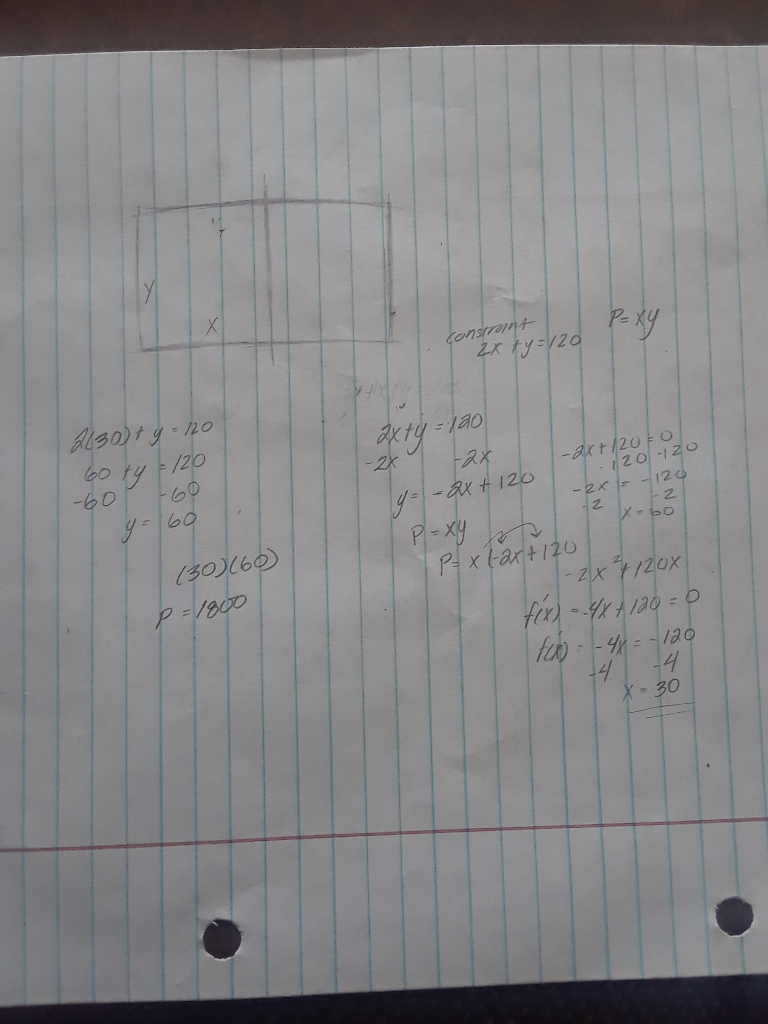 Y
X
constraint
2x + y = 120
P = xy
2(30) + y = 120
60 + y = 120
-60 -60
y = 60
(30)(60)
P = 1800
2x + y = 120
-2x -2x
y = -2x + 120
P = xy
P = x(-2x + 120
-2x² + 120x
f'(x) = -4x + 120 = 0
f'(x) = -4x = -120
-4 -4
x = 30
-2x + 120 = 0
-120 -120
-2x = -120
-2 -2
x = 60